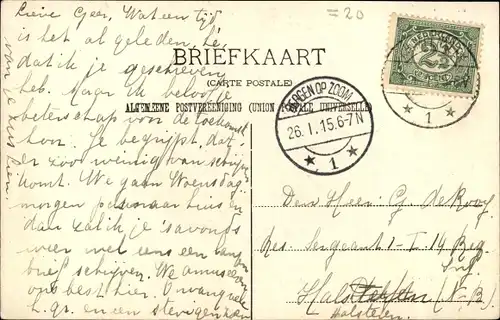 =20
Lieve Geer, Wat een tijd
is het al geleden, hè,
dat ik je geschreven
heb. Maar ik beloof je
beterschap voor de toekomst
hoor. Je begrijpt, dat
er zoo weinig van schrijven
komt. We gaan Woensdag-
morgen naar huis en
dan zal ik je 's avonds
weer wel eens een langen
brief schrijven. We amuseeren
ons best hier. Ontvang vele
h. gr. en een stevigen kus
van je zus
BRIEFKAART
(CARTE POSTALE)
ALGEMEENE POSTVEREENIGING (UNION POSTALE UNIVERSELLE)
BERGEN OP ZOOM
26.1.15.6-7N
1
NEDERLAND
2½
1
Den Heer G. de Rooy
Res. Sergeant 1-I. 14 Reg.
Inf.
Halsteren (N.-B.)
Halsteren